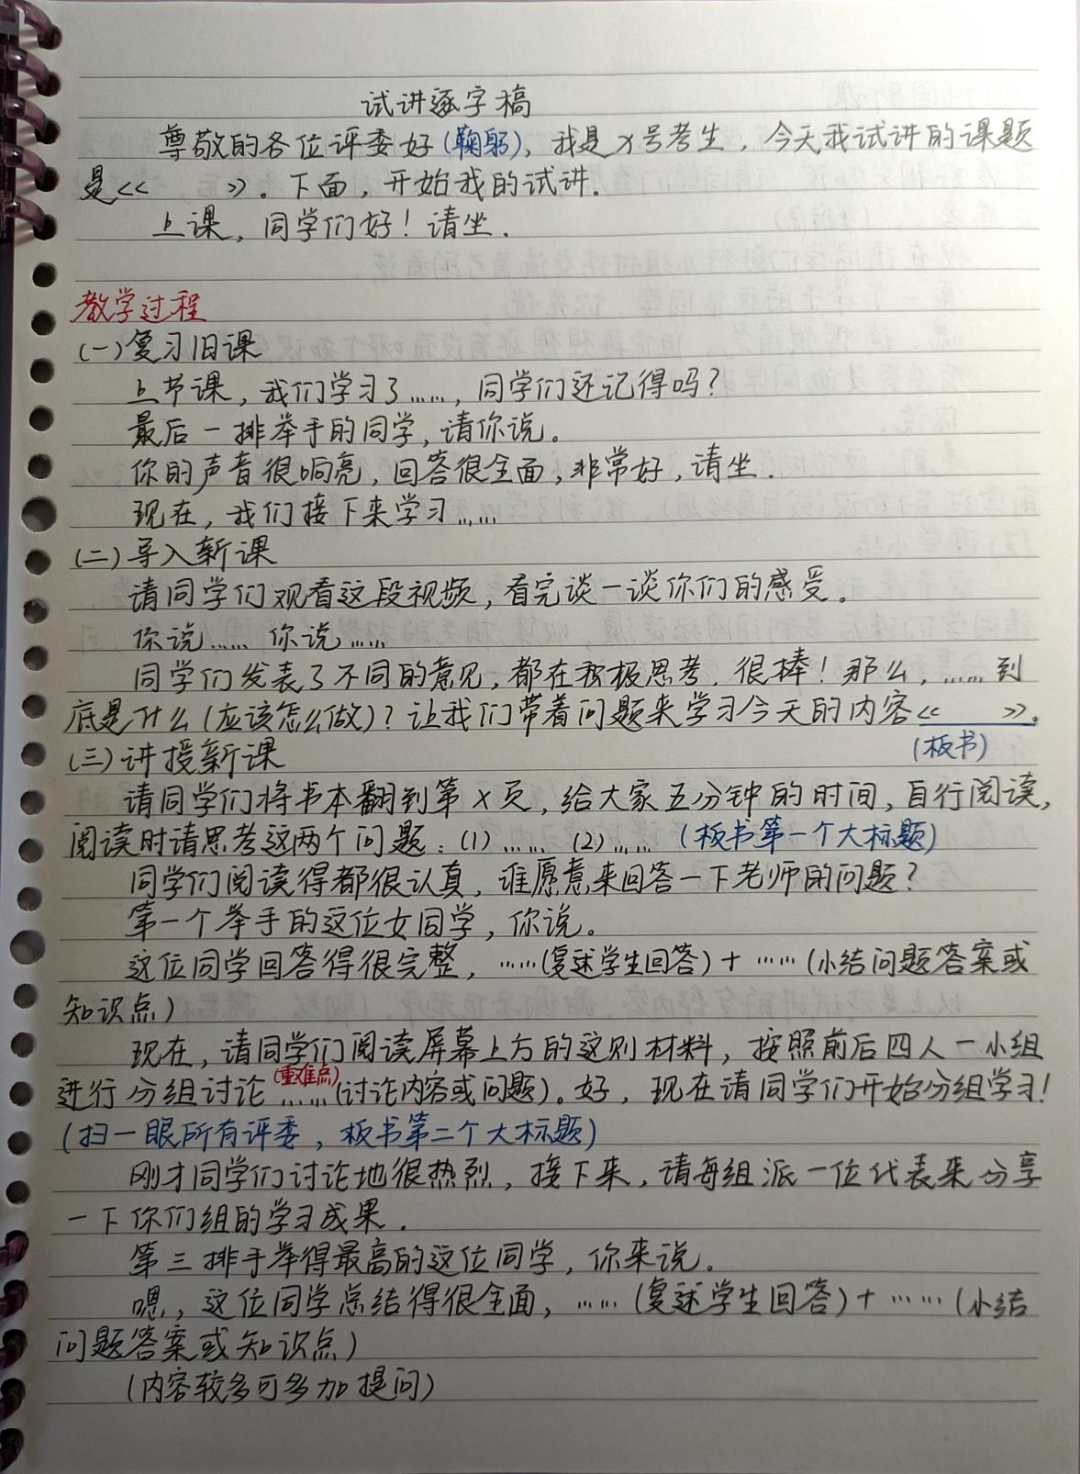 试讲逐字稿
尊敬的各位评委好(鞠躬)，我是X号考生，今天我试讲的课题
是<<      >>。下面，开始我的试讲.
上课，同学们好！请坐.
教学过程
(一)复习旧课
上节课，我们学习了……，同学们还记得吗？
最后一排举手的同学，请你说。
你的声音很响亮，回答很全面，非常好，请坐.
现在，我们接下来学习……
(二)导入新课
请同学们观看这段视频，看完谈一谈你们的感受。
你说…… 你说……
同学们发表了不同的意见，都在积极思考.很棒！那么，……到
底是什么(应该怎么做)？让我们带着问题来学习今天的内容<<      >>。
(板书)
(三)讲授新课
请同学们将书本翻到第X页，给大家五分钟的时间，自行阅读，
阅读时请思考这两个问题：(1)…… (2)…… (板书第一个大标题)
同学们阅读得都很认真，谁愿意来回答一下老师的问题？
第一个举手的这位女同学，你说。
这位同学回答得很完整，……(复述学生回答)+……(小结问题答案或
知识点)
现在，请同学们阅读屏幕上方的这则材料，按照前后四人一小组
(重难点)
进行分组讨论……(讨论内容或问题)。好，现在请同学们开始分组学习！
(扫一眼所有评委，板书第二个大标题)
刚才同学们讨论地很热烈，接下来，请每组派一位代表来分享
一下你们组的学习成果.
第三排手举得最高的这位同学，你来说。
嗯，这位同学总结得很全面，……(复述学生回答)+……(小结
问题答案或知识点)
(内容较多可多加提问)